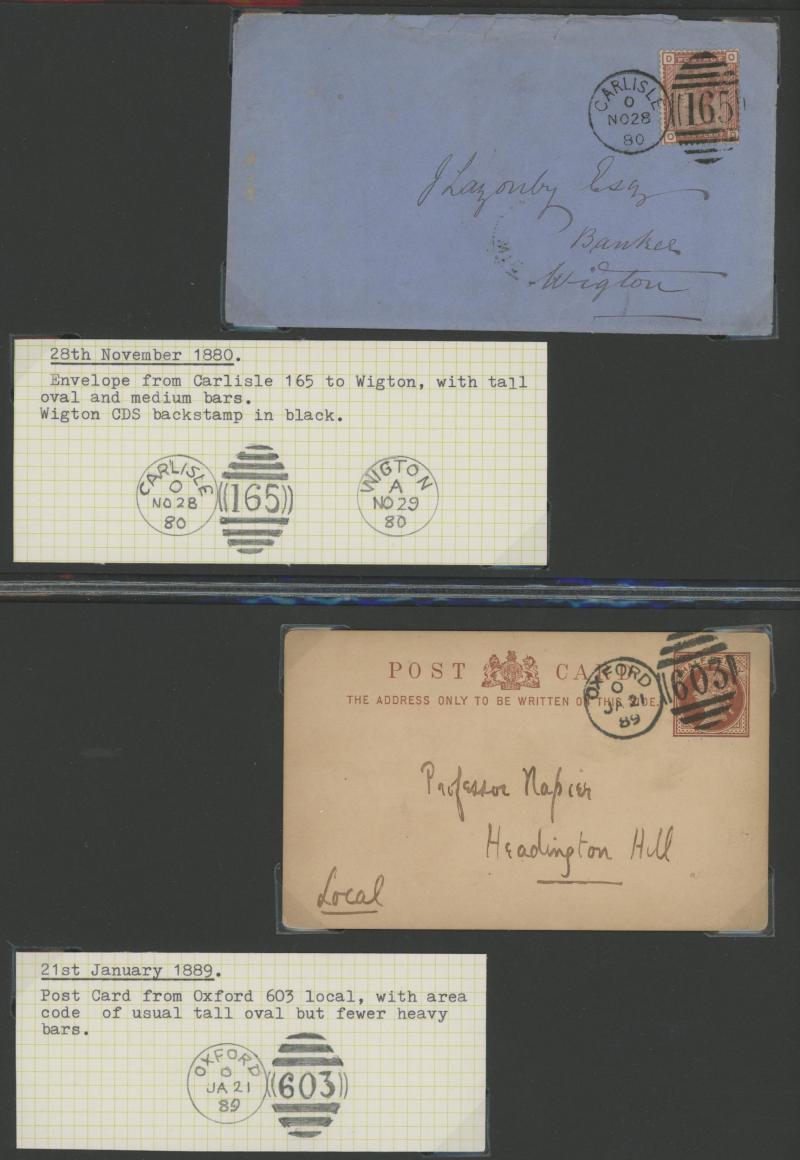 CARLISLE
O
NO 28
80
165
J Lazonby Esq
Banker
Wigton
28th November 1880.
Envelope from Carlisle 165 to Wigton, with tall
oval and medium bars.
Wigton CDS backstamp in black.
CARLISLE
O
NO 28
80
165
WIGTON
A
NO 29
80
POST CARD
THE ADDRESS ONLY TO BE WRITTEN ON THIS SIDE.
OXFORD
O
JA 21
89
603
Professor Napier
Headington Hill
Local
21st January 1889.
Post Card from Oxford 603 local, with area
code of usual tall oval but fewer heavy
bars.
OXFORD
O
JA 21
89
603